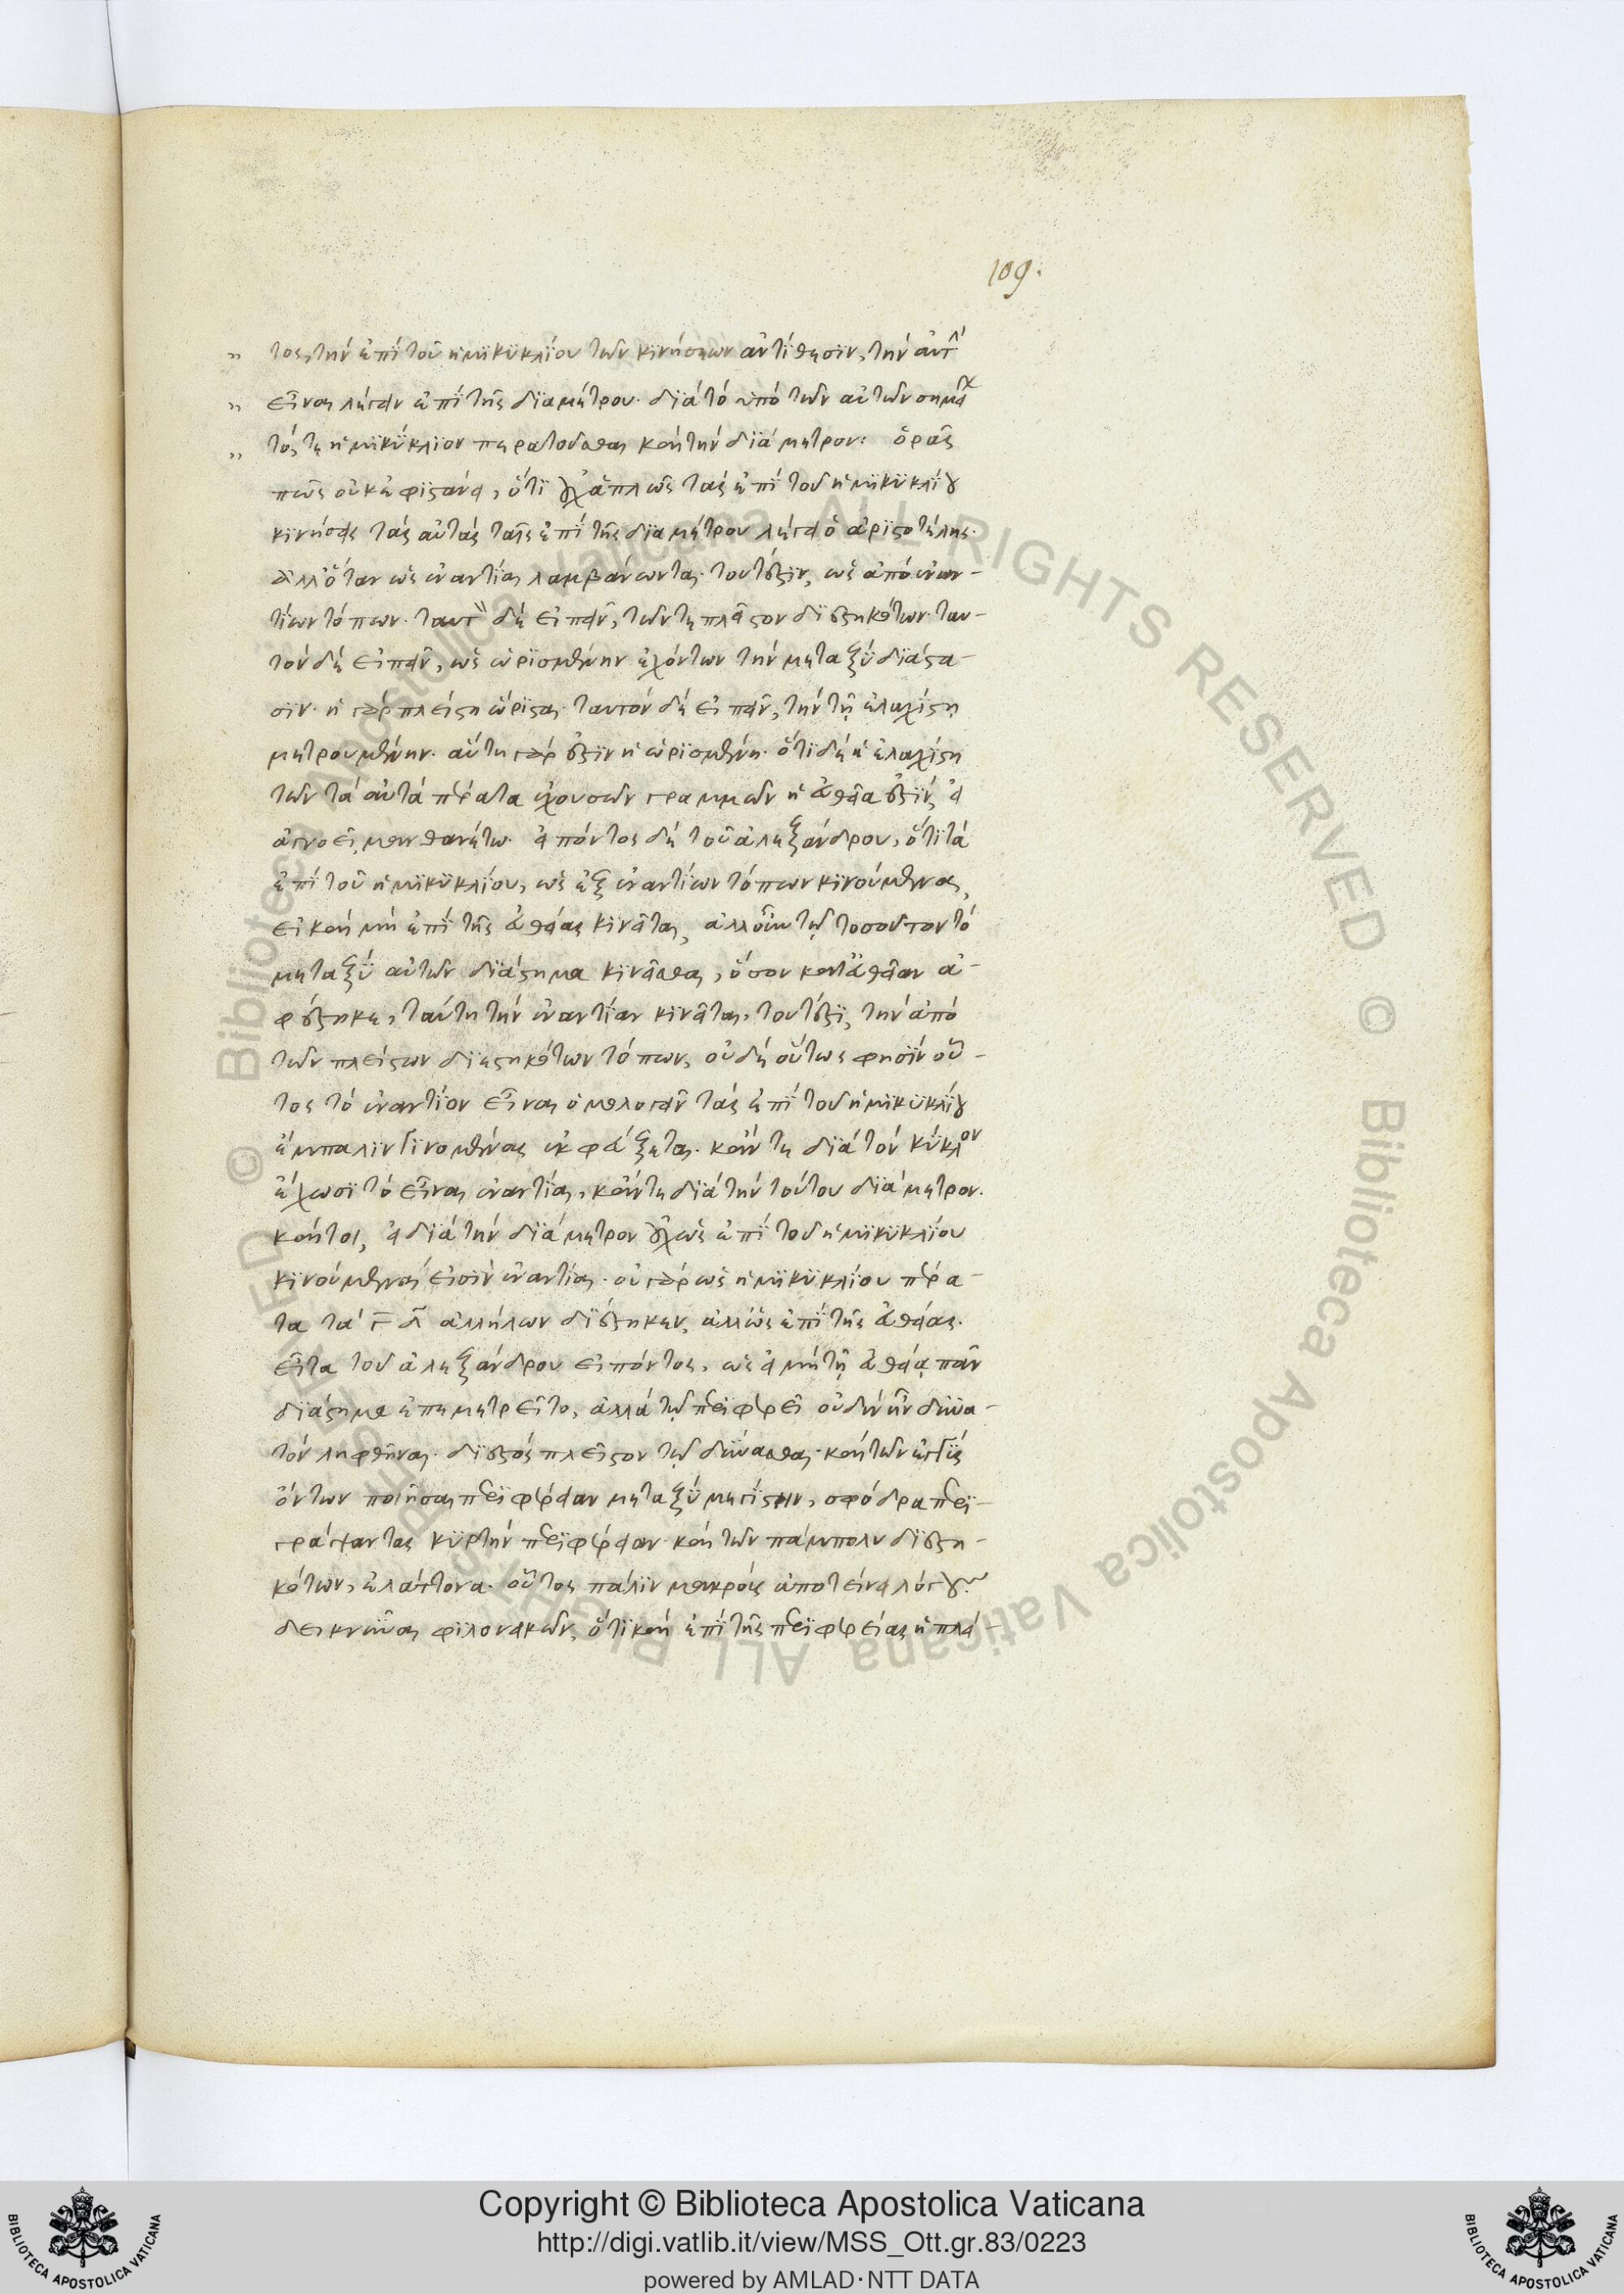 109.
τος, τὴν ἐπὶ τοῦ ἡμικυκλίου τῶν κινήσεων ἀντίθεσιν, τὴν αὐτ(ὴν)
εἶναι λέγειν ἐπὶ τῆς διαμέτρου. διὰ τὸ ὑπὸ τῶν αὐτῶν σημεί
τό, τε ἡμικύκλιον περατοῦσθαι καὶ τὴν διάμετρον: ὁρᾷς
πῶς οὐκ ἐφιστάνει, ὅτι οὐχ ἁπλῶς τὰς ἐπὶ τοῦ ἡμικυκλίου
κινήσεις τὰς αὐτὰς ταῖς ἐπὶ τῆς διαμέτρου λέγει ὁ ἀριστοτέλης.
ἀλλ' ὅταν ὡς ἐναντίαι λαμβάνωνται. τουτέστιν, ὡς ἀπὸ ἐναν-
τίων τόπων. ταυτὸν δὲ εἰπεῖν, τῶν τε πλεῖστον διεστηκότων. ταυ-
τὸν δὲ εἰπεῖν, ὡς ὡρισμένην ἐχόντων τὴν μεταξὺ διάστα-
σιν. ἡ γὰρ πλείστη ὥρισται. ταυτὸν δὲ εἰπεῖν, τὴν τῇ ἐλαχίστῃ
μετρουμένην. αὕτη γάρ ἐστιν ἡ ὡρισμένη. ὅτι δὲ ἡ ἐλαχίστη
τῶν τὰ αὐτὰ πέρατα ἐχουσῶν γραμμῶν ἡ εὐθεῖα ἐστίν, εἰ
ἀγνοεῖ, μανθανέτω. εἰπόντος δὲ τοῦ ἀλεξάνδρου, ὅτι τὰ
ἐπὶ τοῦ ἡμικυκλίου, ὡς ἐξ ἐναντίων τόπων κινούμενα,
εἰ καὶ μὴ ἐπὶ τῆς εὐθείας κινεῖται, ἀλλ' οὖν τῷ τοσοῦτον τὸ
μεταξὺ αὐτῶν διάστημα κινεῖσθαι, ὅσον κατ' εὐθεῖαν ἀ-
φέστηκε, ταύτῃ τὴν ἐναντίαν κινεῖται, τουτέστι, τὴν ἀπὸ
τῶν πλείστων διεστηκότων τόπων, οὐδὲ οὕτως φησὶν οὗ-
τος τὸ ἐναντίον εἶναι ὁμολογεῖν τὰς ἐπὶ τοῦ ἡμικυκλίου
ἔμπαλιν γινομένας ἐκφεύξεται. κἄν τε διὰ τὸν κύκλον
ἔχωσι τὸ εἶναι ἐναντίαι, κἄν τε διὰ τὴν τούτου διάμετρον.
καίτοι, εἰ διὰ τὴν διάμετρον οὐχ ὡς ἐπὶ τοῦ ἡμικυκλίου
κινούμεναί εἰσιν ἐναντίαι. οὐ γὰρ ὡς ἡμικυκλίου πέρα-
τα τὰ γ δ ἀλλήλων διέστηκεν, ἀλλ' ὡς ἐπὶ τῆς εὐθείας.
εἶτα τοῦ ἀλεξάνδρου εἰπόντος, ὡς εἰ μὴ τῇ εὐθείᾳ πᾶν
διάστημα ἐπεμετρεῖτο, ἀλλὰ τῷ περιφερεῖ οὐδὲν ἦν δυνα-
τὸν ληφθῆναι. διεστὸς πλεῖστον τῷ δύνασθαι. καὶ τῶν ἐγγὺς
ὄντων ποιῆσαι περιφέρειαν μεταξὺ μεγίστην, σφόδρα περι-
γράψαντας κυρτὴν περιφέρειαν. καὶ τῶν πάμπολυ διεστη-
κότων, ἐλάττονα. οὗτος πάλιν μακροὺς ἀποτείνει λόγους
δεικνύναι φιλονεικῶν, ὅτι καὶ ἐπὶ τῆς περιφερείας ἡ πλεί-
Copyright © Biblioteca Apostolica Vaticana
http://digi.vatlib.it/view/MSS_Ott.gr.83/0223
powered by AMLAD·NTT DATA